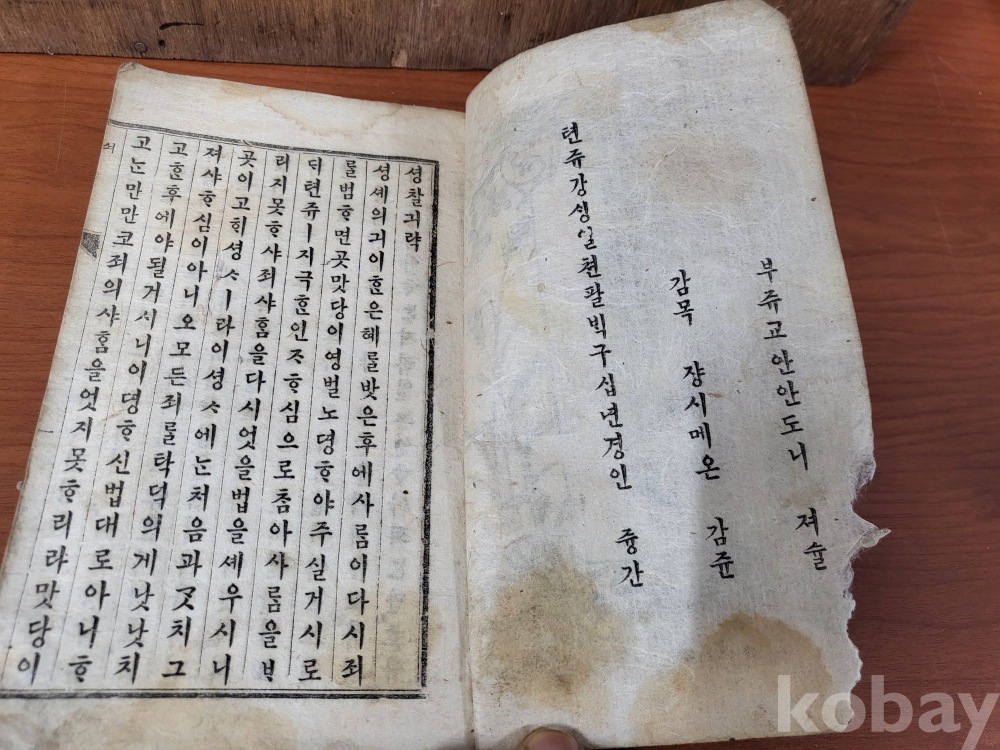 부쥬교안안도니 져슐
감목 쟝시메온 감쥰
텬쥬강ᄉᆡᆼ일쳔팔ᄇᆡᆨ구십년경인 즁간
셩찰긔략
셩셰의긔이ᄒᆞᆫ은혜ᄅᆞᆯ밧은후에사ᄅᆞᆷ이다시죄
ᄅᆞᆯ범ᄒᆞ면곳맛당이영벌노뎡ᄒᆞ야주실거시로
ᄃᆡ텬쥬ㅣ지극ᄒᆞᆫ인ᄌᆞᄒᆞ심으로ᄎᆞᆷ아사ᄅᆞᆷ을ᄇᆞ
리지못ᄒᆞ샤죄샤ᄒᆞᆷ을다시엇을법을셰우시니
곳이고ᄒᆡ셩ᄉᆞㅣ라이셩ᄉᆞ에ᄂᆞᆫ처음과ᄀᆞᆺ치그
져샤ᄒᆞ심이아니오모든죄ᄅᆞᆯ탁덕의게낫낫치
고ᄒᆞᆫ후에야될거시니이뎡ᄒᆞ신법대로아니ᄒᆞ
고ᄂᆞᆫ만만코죄의샤ᄒᆞᆷ을엇지못ᄒᆞ리라맛당이
kobay